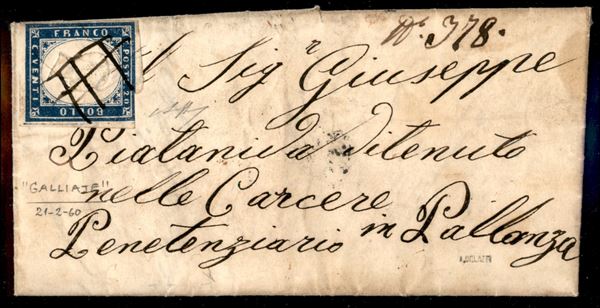 FRANCO
C. VENTI
POSTE 20
BOLLO
N.° 378.
Al Sigr Giuseppe
Piatanida ditenuto
nelle Carcere
Penetenziario in Pallanza
"GALLIATE"
21-2-60